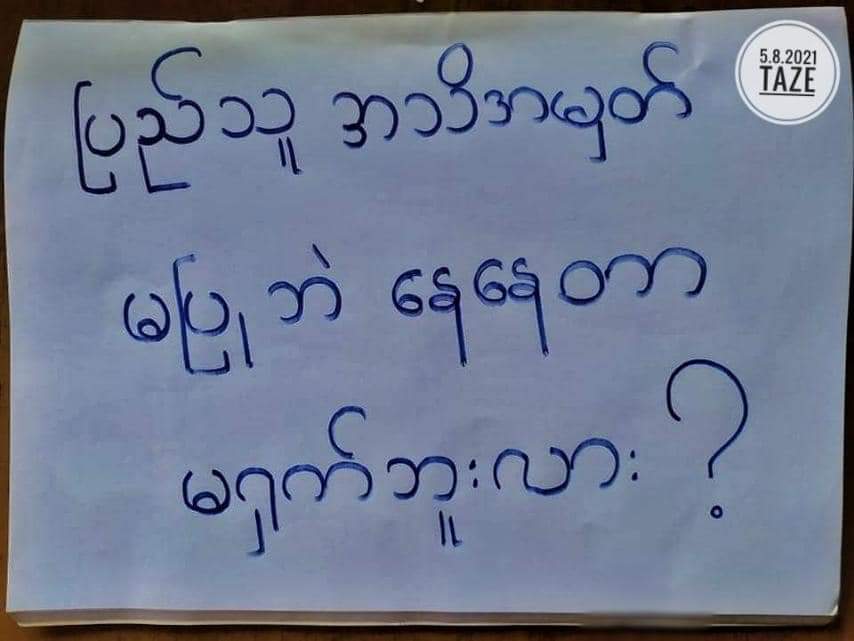 5.8.2021
TAZE
ပြည်သူ အသိအမှတ်
မပြုဘဲ နေနေတာ
မရှက်ဘူးလား ?